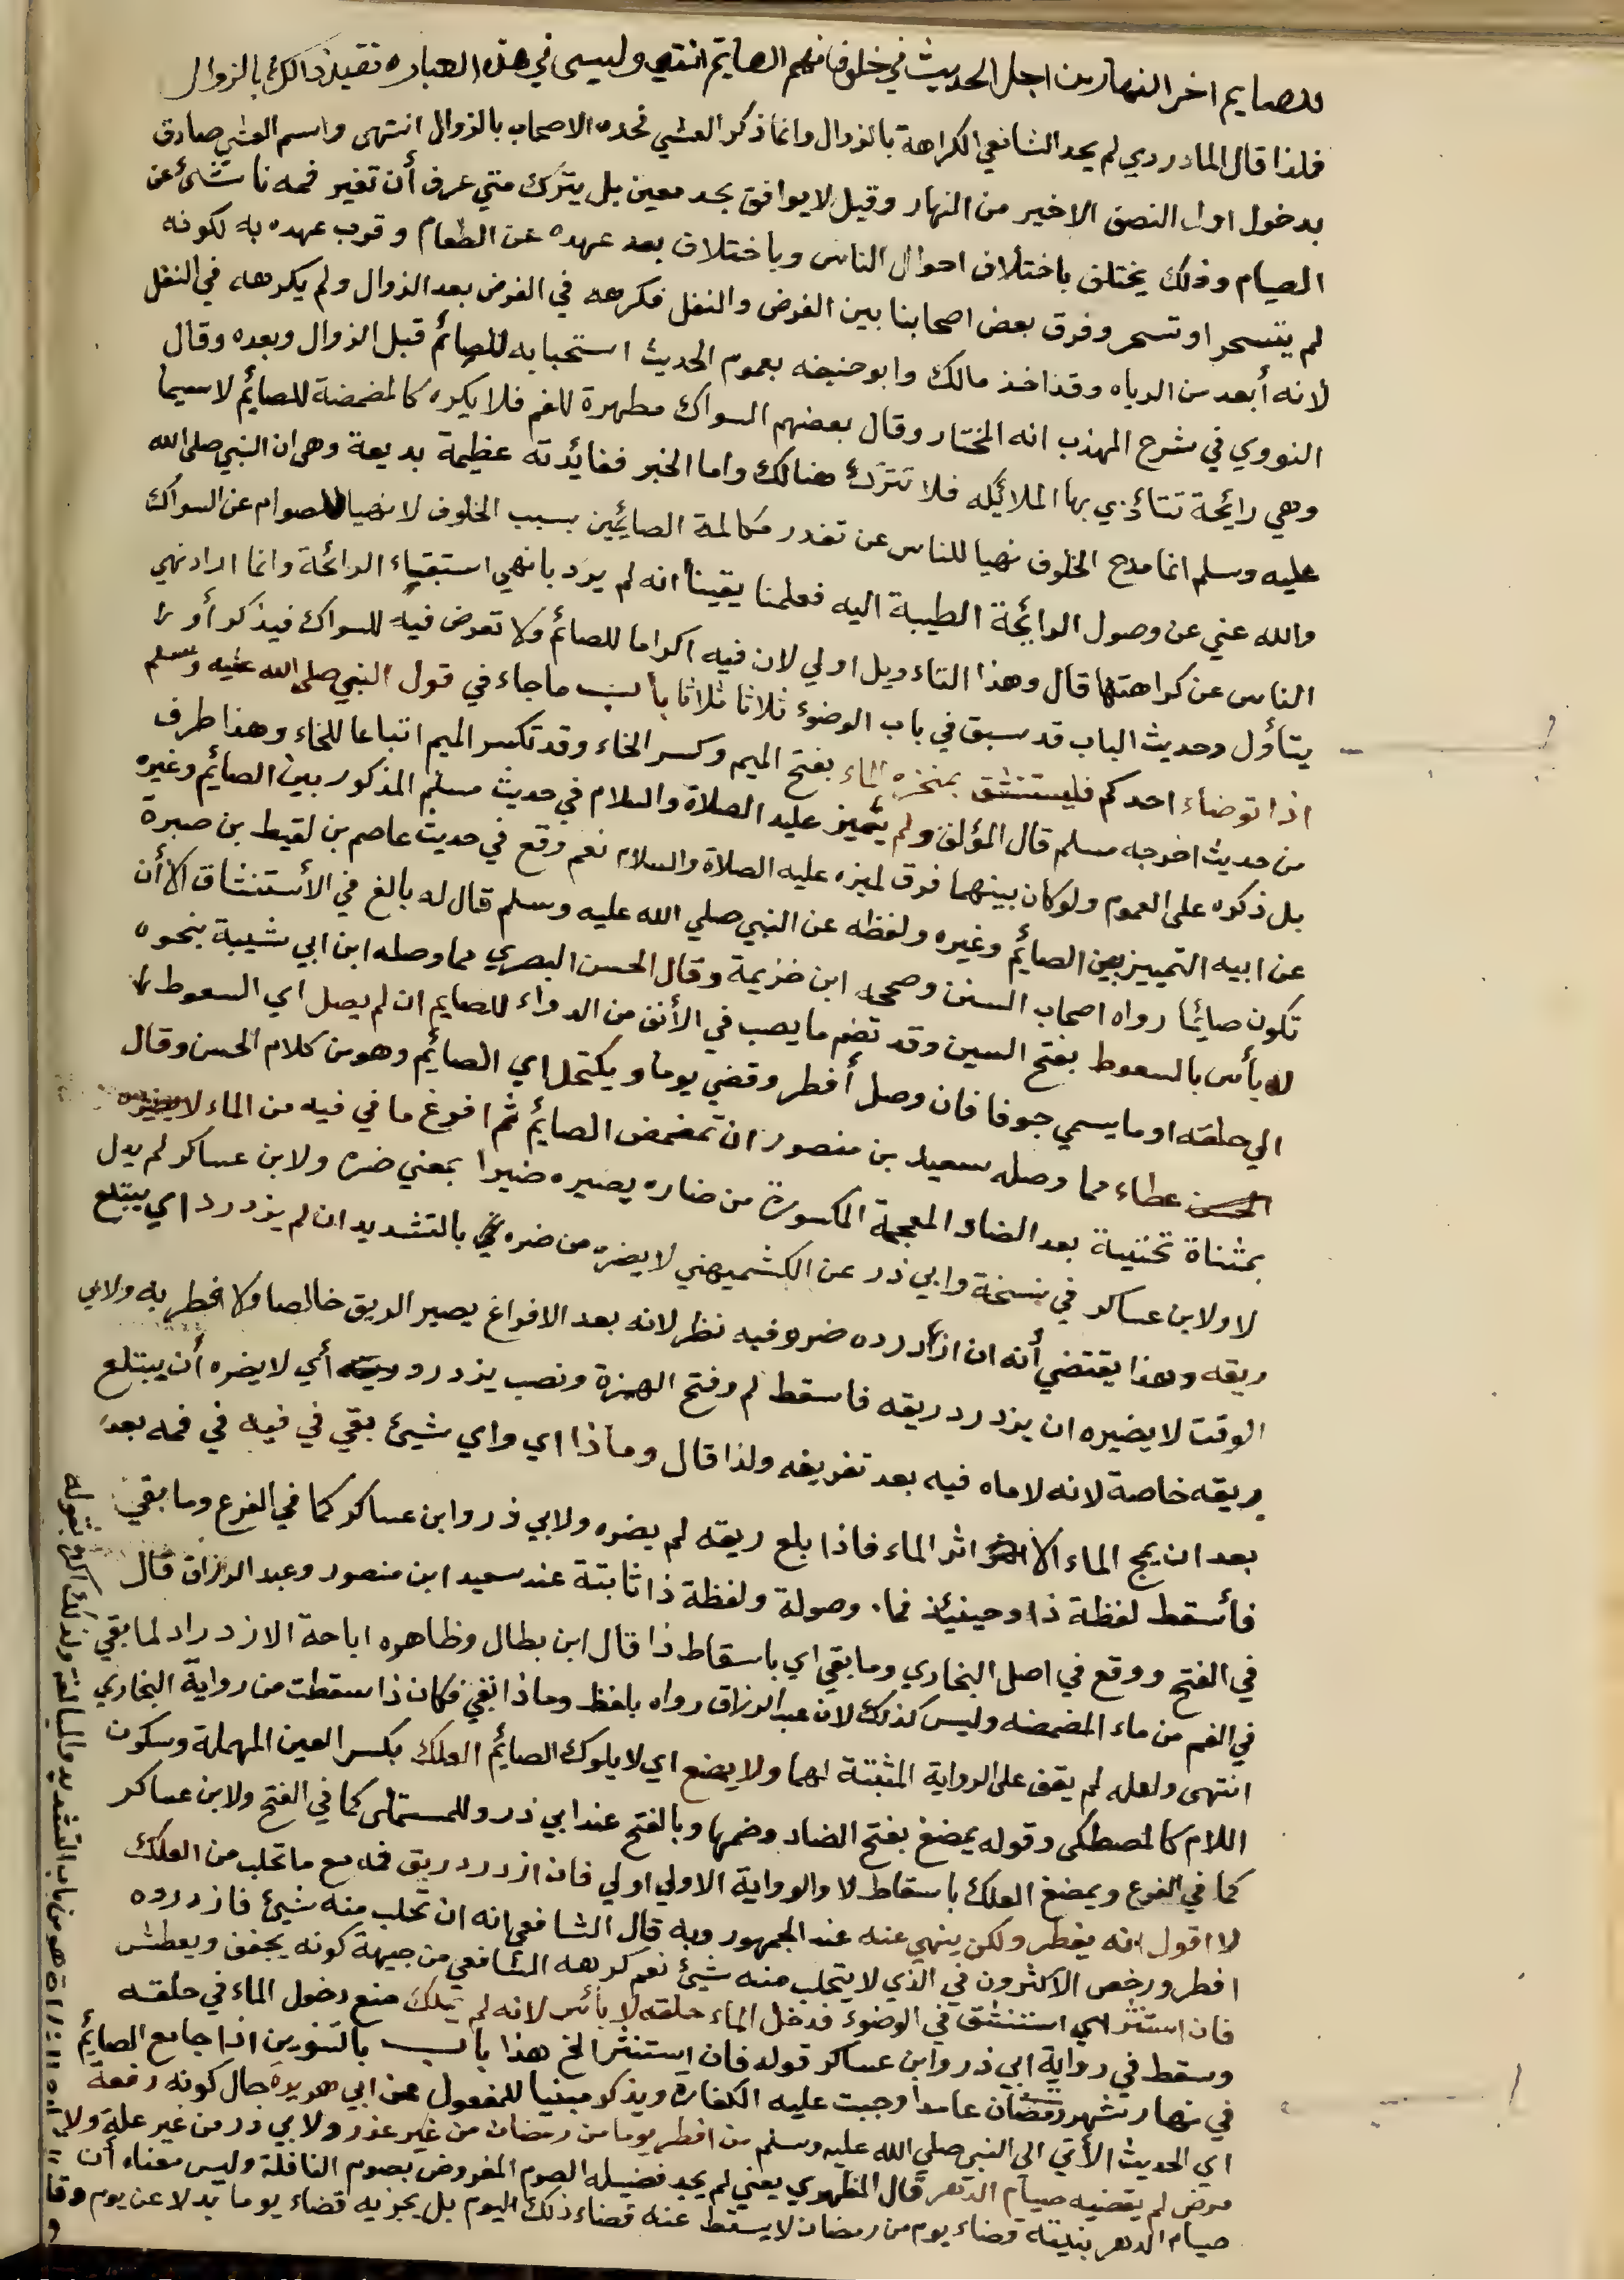 للصايم اخر النهار من اجل الحديث في خلوف فم الصايم انتهي وليس في هذه العباره تقييد ذالك بالزوال
فلذا قال الماوردي لم يحد الشافعي الكراهة بالزوال وانما ذكر العشي فحده الاصحاب بالزوال انتهى واسم العشي صادق
بدخول اول النصف الاخير من النهار وقيل لا يوافق بحد معين بل يترك متي عرف أن تغير فمه ناشئ عن
الصيام وذلك يختلف باختلاف احوال الناس وباختلاف بعد عهده عن الطعام وقرب عهده به لكونه
لم يتسحر او تسحر وفرق بعض اصحابنا بين الفرض والنفل فكرهه في الفرض بعد الزوال ولم يكرهه في النفل
لانه أبعد من الرياه وقد اخذ مالك وابو حنيفه بعموم الحديث استحبابه للصائم قبل الزوال وبعده وقال
النووي في شرح المهذب انه المختار وقال بعضهم السواك مطهرة للفم فلا يكره كالمضمضة للصائم لاسيما
وهي رايحة تتأذي بها الملائكه فلا تترك هنالك واما الخبر ففائدته عظيمة بديعة وهى ان النبي صلى الله
عليه وسلم انما مدح الخلوف نهيا للناس عن تقذر مكالمة الصايمين بسبب الخلوف لا نهيا للصوام عن السواك
والله غني عن وصول الرايحة الطيبة اليه فعلمنا يقينا انه لم يرد بالنهي استبقاء الرائحة وانما اراد نهي
الناس عن كراهتها قال وهذا التاءويل اولي لان فيه اكراما للصائم ولا تعرض فيه للسواك فيذكر أو
يتأول وحديث الباب قد سبق في باب الوضوء ثلاثا ثلاثا باب ما جاء في قول النبي صلى الله عليه وسلم
اذا توضاء احدكم فليستنشق بمنخره الماء بفتح الميم وكسر الخاء وقد تكسر الميم اتباعا للخاء وهذا طرف
من حديث اخرجه مسلم قال المؤلف ولم يميز عليه الصلاة والسلام في حديث مسلم المذكور بين الصائم وغيره
بل ذكره على العموم ولو كان بينهما فرق لميزه عليه الصلاة والسلام نعم وقع في حديث عاصم بن لقيط بن صبرة
عن ابيه التمييز بين الصائم وغيره ولفظه عن النبي صلي الله عليه وسلم قال له بالغ في الأستنشاق الا أن
تكون صائما رواه اصحاب السنن وصححه ابن خزيمة وقال الحسن البصري مما وصله ابن ابي شيبة بنحوه
لا بأس بالسعوط بفتح السين وقد تضم ما يصب في الأنف من الدواء للصايم ان لم يصل اي السعوط
الي حلقه او ما يسمي جوفا فان وصل أفطر وقضي يوما ويكتحل اي الصائم وهو من كلام الحسن وقال
عطاء مما وصله سعيد بن منصور ان تمضمض الصائم ثم افرغ ما في فيه من الماء لا يضيره
بمثناة تحتية بعد الضاد المعجمة المكسورة من ضاره يضيره ضيرا بمعني ضره ولابن عساكر لم بدل
لا ولابن عساكر في نسخة وابي ذر عن الكشميهني لا يضره من ضره بالتشديد ان لم يزدرد اي يبتلع
ريقه وهذا يقتضي أنه ان ازدرده ضر وفيه نظر لانه بعد الافراغ يصير الريق خالصا ولا فطر به ولابي
الوقت لا يضيره ان يزدرد ريقه فاسقط لم وفتح الهمزة ونصب يزدرد أي لا يضره أن يبتلع
ريقه خاصة لانه لا ماه فيه بعد تفريغه ولذا قال وماذا اي واي شيئ بقي في فيه في فمه بعد
بعد ان يمج الماء الا اثر الماء فاذا بلع ريقه لم يضره ولابي ذر وابن عساكر كما في الفرع وما بقي
فأسقط لفظة ذا وحينئذ فما موصولة ولفظة ذا ثابتة عند سعيد ابن منصور وعبد الرزاق قال
في الفتح ووقع في اصل البخاري وما بقي اي باسقاط ذا قال ابن بطال وظاهره اباحة الازدراد لما بقي
في الفم من ماء المضمضه وليس كذلك لان عبد الرزاق رواه بلفظ وماذا بقي فكان ذا سقطت من رواية البخاري
انتهى ولعله لم يقف على الرواية المثبتة لهما ولا يمضغ اي لا يلوك الصائم العلك بكسر العين المهملة وسكون
اللام كالمصطكى وقوله يمضغ بفتح الضاد وضمها وبالفتح عند ابي ذر وللمستملى كما في الفتح ولابن عساكر
كما في الفرع ويمضغ العلك باسقاط لا والرواية الاولي اولي فان ازدرد ريق فمه مع ما تحلب من العلك
لا اقول انه يفطر ولكن ينهي عنه عند الجمهور وبه قال الشافعي انه ان تحلب منه شيئ فازدرده
افطر ورخص الاكثرون في الذي لا يتحلب منه شيئ نعم كرهه الشافعي من جهة كونه يجفف ويعطش
فان استنثر اي استنشق في الوضوء فدخل الماء حلقه لا بأس لانه لم يملك منع دخول الماء في حلقه
وسقط في رواية ابي ذر وابن عساكر قوله فان استنثر الخ هذا باب بالتنوين اذا جامع الصايم
في نهار شهر رمضان عامدا وجبت عليه الكفارة ويذكر مبنيا للمفعول عن ابي هريرة حال كونه رفعه
اي الحديث الأتي الي النبي صلي الله عليه وسلم من افطر يوما من رمضان من غير عذر ولابي ذر من غير علة ولا
مرض لم يقضه صيام الدهر قال المظهري يعني لم يجد فضيله الصوم المفروض بصوم النافلة وليس معناه أن
صيام الدهر بنية قضاء يوم من رمضان لا يسقط عنه قضاء ذلك اليوم بل يجزيه قضاء يوما بدلا عن يوم
هو من باب التشديد والمبالغة ولذلك اكده بقوله